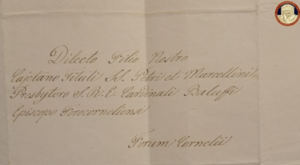 Dilecto Filio Nostro
Cajetano Tituli S.S. Petri et Marcellini
Presbytero S. R. E. Cardinali Baluffi
Episcopo
Forum Cornelii